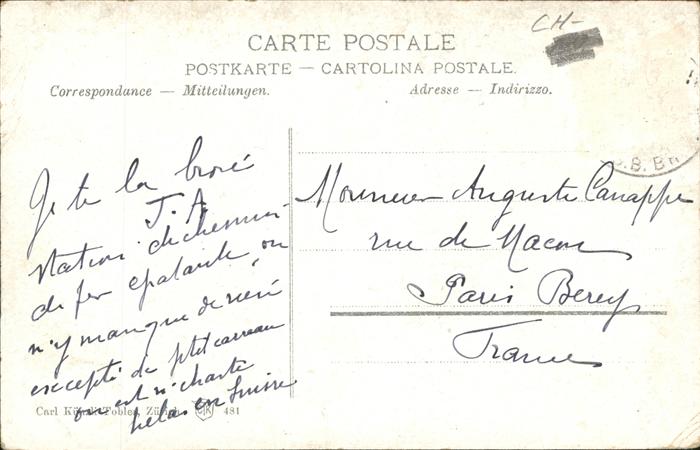 CH-
CARTE POSTALE
POSTKARTE — CARTOLINA POSTALE.
Correspondance — Mitteilungen.
Adresse — Indirizzo.
B. BR
Je te la
J. A.
station de chemin
de fer epatante, on
n'y manque de rien
excepté de ptit carreau
on est
helas en Suisse
Monsieur Auguste Canappe
rue de Macon
Paris Bercy
France
Carl Künzli-Tobler, Zürich CKT 481